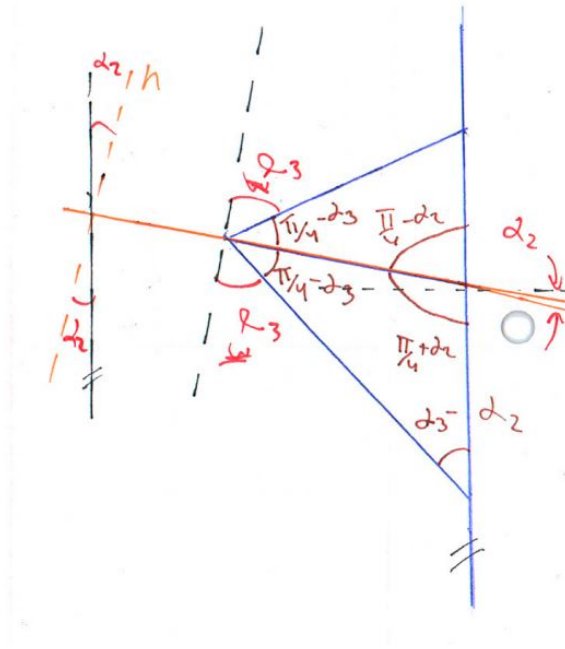 α₂
n
α₃
π/4-α₃
π/4-α₂
α₂
π/4-α₃
α₃
α₂
π/4+α₂
α₃-
α₂